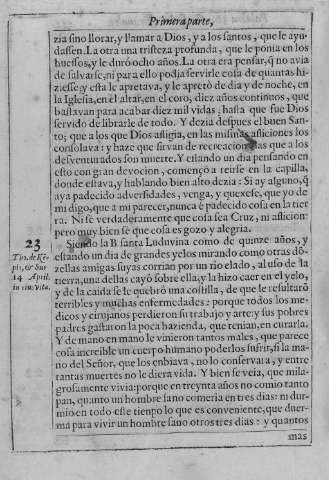 Primera parte,
zia sino llorar, y llamar a Dios, y a los santos, que le ayu-
dassen. La otra una tristeza profunda, que le ponia en los
huessos, y le duró ocho años. La otra era pensar, q̃ no avia
de salvarse, ni para ello podja servirle cosa de quantas hi-
ziesse: y esta le apretava, y le apretò de dia y de noche, en
la Iglesia, en el altar, en el coro, diez años continuos, que
bastavan para acabar diez mil vidas, hasta que fue Dios
servido de librarle de todo. Y dezia despues el buen San-
to; que a los que Dios afligia, en las mismas afliciones los
consolava: y haze que sirvan de recreacion las que a los
desventurados son muerte. Y estando un dia pensando en
esto con gran devocion, començò a reirse en la capilla,
donde estava, y hablando bien alto dezia: Si ay alguno, q̃
aya padecido adversidades, venga, y quexese, que yo de
mi digo, que a mi parecer, nunca è padecido cosa en la tier
ra. Ni se verdaderamente que cosa sea Cruz, ni aflicion:
pero muy bien sè que cosa es gozo y alegria.
23 Siendo la B santa Luduvina como de quinze años, y
estando un dia de grandes yelos mirando como otras dõ-
zellas amigas suyas corrian por un rio elado, al uso de la
tierra, una dellas cayò sobre ella, y la hizo caer en el yelo,
y de la caida se le quebrò una costilla, de que le resultarõ
terribles y muchas enfermedades: porque todos los me-
dicos y cirujanos perdieron su trabajo y arte: y sus pobres
padres gastaron la poca hazienda, que tenian, en curarla.
Y de mano en mano le vinieron tantos males, que parece
cosa increible un cuerpo humano poderlos sufrir, si la ma-
no del Señor, que los enbiava, no lo conservara, y entre
tantas muertes no le diera vida. Y bien se veia, que mila-
grosamente vivia: porque en treynta años no comio tanto
pan, quanto un hombre sano comeria en tres dias: ni dur-
mio en todo este tienpo lo que es conveniente, que duer-
ma para vivir un hombre sano otros tres dias: y quantos
mas
14 April.
in eiu; vita.